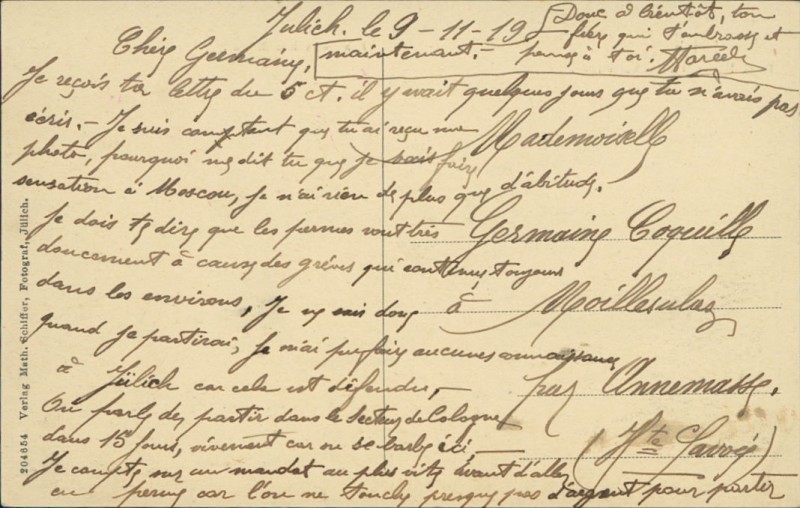 Jülich. le 9-11-19
Chère Germaine,
Je reçois ta lettre du 5 ct. il y avait quelques jours que tu n'avais pas
écris. - Je suis comptent que tu ai reçu ma
photo, pourquoi me dit tu que je vais faire
sensation à Moscou, je n'ai rien de plus que d'abitude.
Je dois te dire que les permes vont très
doucement à cause des grèves qui continue toujours
dans les environs, Je ne sais donc
quand je partirai, je n'ai pu faire aucunes connaissance
à Jülich car cela est défendu, -
On parle de partir dans le secteur de Cologne
dans 15 jours, vivement car on se barbe ici, -
Je compte sur un mandat au plus vite avant d'aller
en perme car l'on ne touche presque pas d'argent pour partir
maintenant. -
Donc à bientôt, ton
frère qui t'embrasse et
pense à toi. Marcel
Mademoiselle
Germaine Coquille
à Moillesulaz
par Annemasse.
(Hte Savoie)
204654 Verlag Math. Schiffer, Fotograf, Jülich.